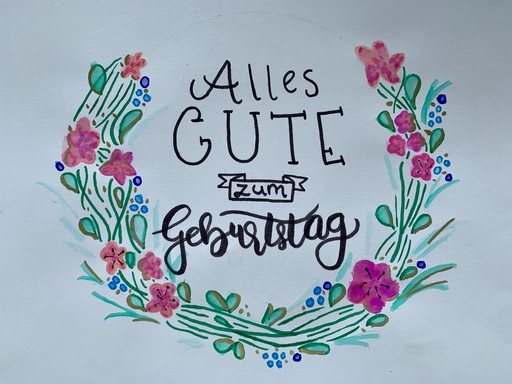 Alles
GUTE
zum
Geburtstag